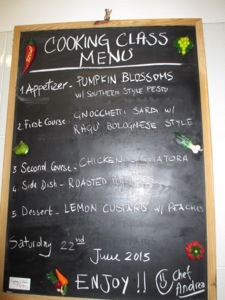 COOKING CLASS
MENU
1 Appetizer - PUMPKIN BLOSSOMS
w/ SOUTHERN STYLE PESTO
2 First Course - GNOCCHETTI SARDI w/
RAGÙ BOLOGNESE STYLE
3 Second Course - CHICKEN
4 Side Dish - ROASTED
5 Dessert - LEMON CUSTARD w/ PEACHES
Saturday 22nd
June 2015
ENJOY !!
Chef
Andrea